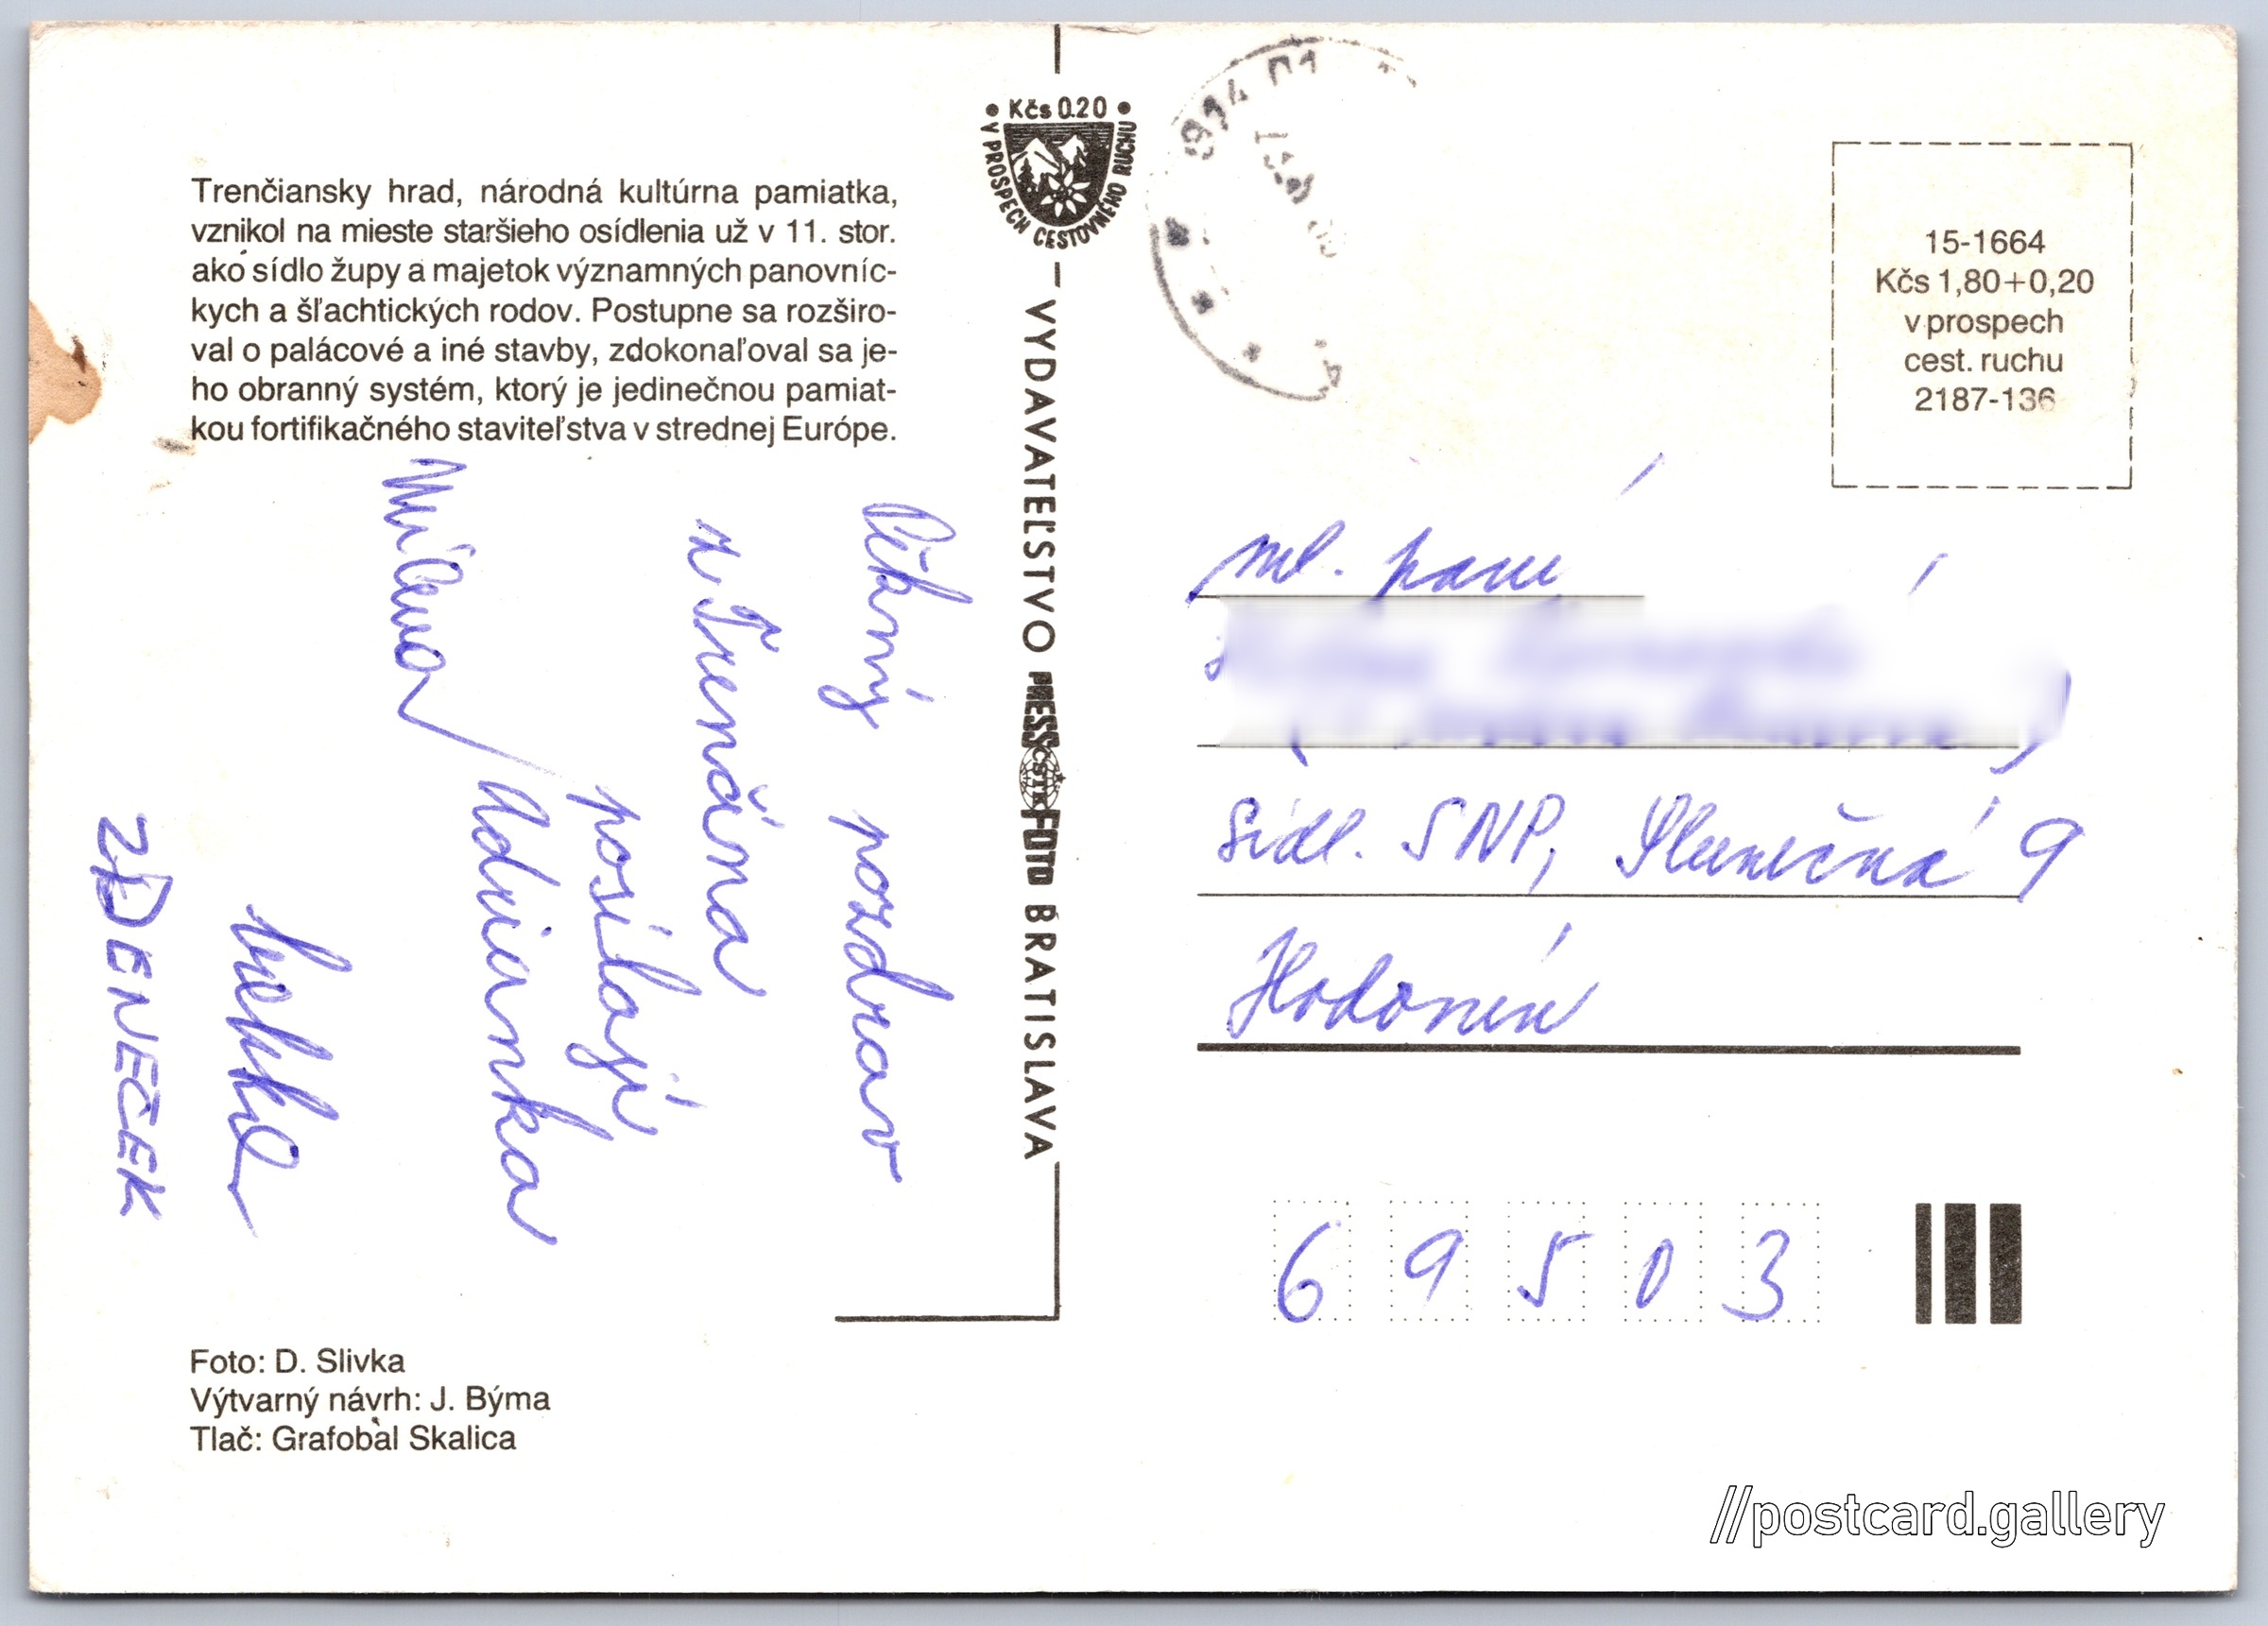 Trenčiansky hrad, národná kultúrna pamiatka,
vznikol na mieste staršieho osídlenia už v 11. stor.
ako sídlo župy a majetok významných panovníc-
kych a šľachtických rodov. Postupne sa rozširo-
val o palácové a iné stavby, zdokonaľoval sa je-
ho obranný systém, ktorý je jedinečnou pamiat-
kou fortifikačného staviteľstva v strednej Európe.
pozdrav
z Trenčína
posílají
Milena Adrianka
ZDENEČEK
Foto: D. Slivka
Výtvarný návrh: J. Býma
Tlač: Grafobal Skalica
• Kčs 0.20 •
V PROSPECH CESTOVNÉHO RUCHU
VYDAVATEĽSTVO PRESSFOTO BRATISLAVA
ČSTK
15-1664
Kčs 1,80+0,20
v prospech
cest. ruchu
2187-136
ml. paní
Sídl. SNP, Slunečná 9
Hodonín
69503
//postcard.gallery